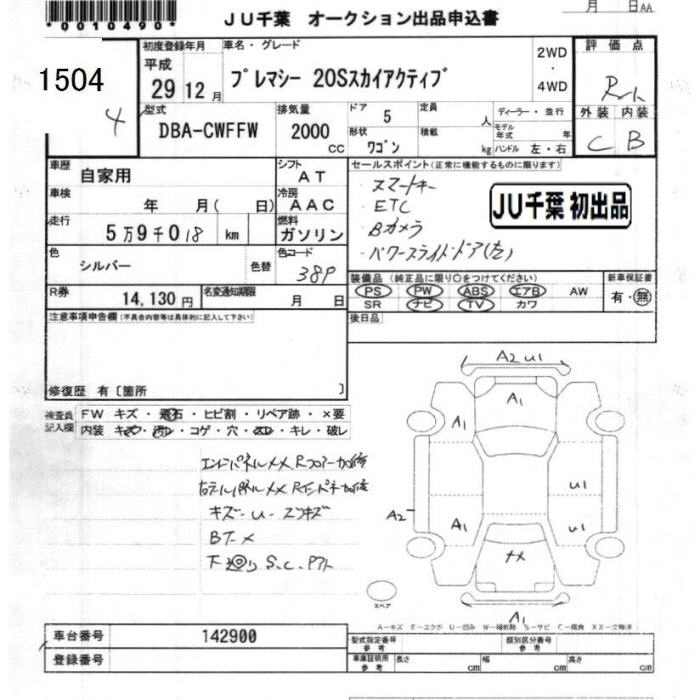 *0010490*
JU千葉 オークション出品申込書
月 日AA
1504
4
初度登録年月
平成
29 12月
車名・グレード
プレマシー 20Sスカイアクティブ
2WD
・
4WD
評価点
外装 内装
C B
型式
DBA-CWFFW
排気量
2000
CC
ドア 5
形状 ワゴン
定員 人
積載 kg
ディーラー・並行
モデル年式 年
ハンドル 左・右
車歴 自家用
シフト AT
車検 年 月( 日)
冷房 AAC
走行 5万9千018 km
燃料 ガソリン
色 シルバー 色替
色コード 38P
R券 14,130円
名変通知期限 月 日
セールスポイント(正常に機能するものに限ります)
・スマートキー
・ETC
・Bカメラ
・パワースライドドア(左)
JU千葉 初出品
装備品 (純正品に限り○をつけてください)
PS PW ABS エアB AW
SR ナビ TV カワ
新車保証書
有・無
後日品
注意事項申告欄(不具合内容等は具体的に記入して下さい)
修復歴 有〔箇所 〕
検査員記入欄
FW キズ・飛石・ヒビ割・リペア跡・×要
内装 キズ・汚レ・コゲ・穴・スレ・キレ・破レ
エンドパネルXX Rフロアー加修
右テールパネルXX Rインパネ加修
キズ-U-エクボ
BT-X
下廻りS.C.
A2 U1
A1
A1
A2
A1
U1
U1
XX
A1
スペア
A-キズ E-エクボ U-凹み W-補修跡 S-サビ C-腐食 XX-交換済
車台番号 142900
登録番号
型式指定番号 参考
類別区分番号 参考
車庫証明用 参考 長さ cm 幅 cm 高さ cm